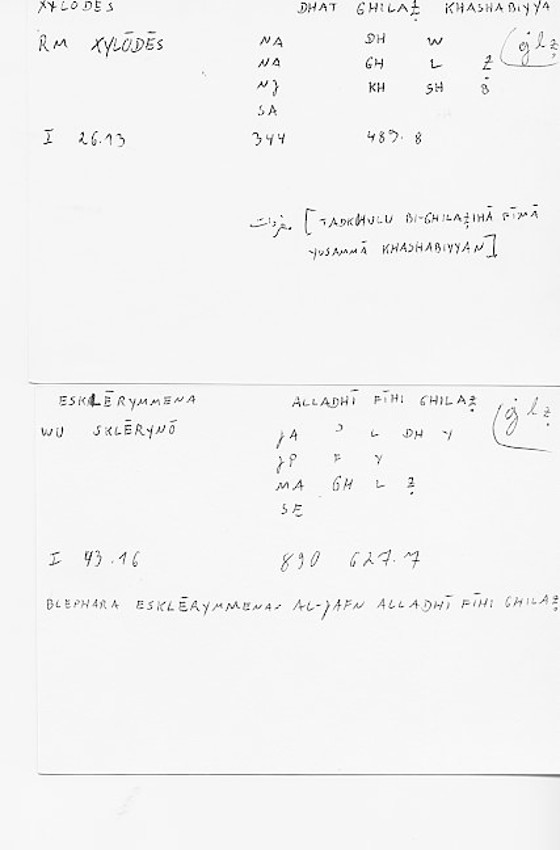 XYLODES DHAT GHILAẒ KHASHABIYYA
RM XYLŌDĒS NA DH W (ġlẓ
NA GH L Ẓ
NJ KH SH B
SA
I 26.13 344 489.8
مفردات [TADKHULU BI-GHILAẒIHĀ FĪMĀ
YUSAMMĀ KHASHABIYYAN]
ESKLĒRYMMENA ALLADHĪ FĪHI GHILAẒ (ġlẓ
WU SKLĒRYNŌ JA ᵓ L DH Y
JP F Y
MA GH L Ẓ
SE
I 43.16 890 627.7
BLEPHARA ESKLĒRYMMENA: AL-JAFN ALLADHĪ FĪHI GHILAẒ